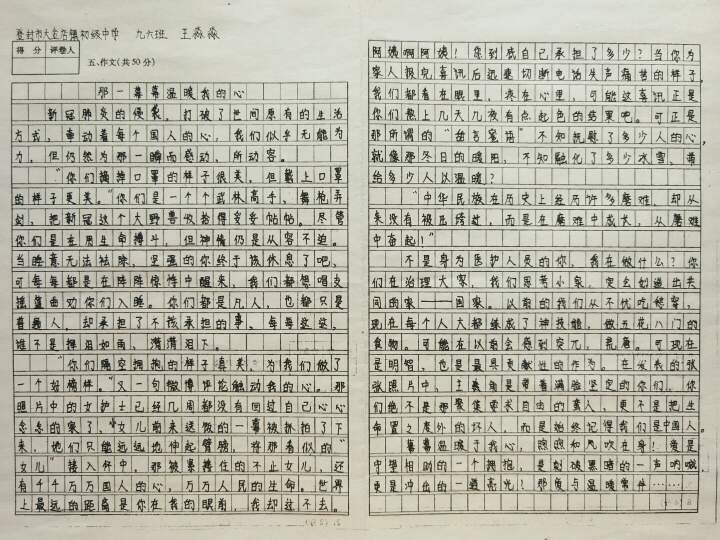 登封市大金店镇初级中学 九六班 王淼淼
得分 评卷人
五、作文(共50分)
那一幕幕温暖我的心
新冠肺炎的侵袭,打破了世间原有的生活
方式,牵动着每个国人的心,我们似乎无能为
力,但仍然为那一瞬而感动,所动容。
“你们摘掉口罩的样子很美,但戴上口罩
的样子更美。”你们是一个个武林高手,舞枪弄
剑,把新冠这个大野兽收拾得妥妥帖帖。尽管
你们是在用生命搏斗,但神情仍是从容不迫。
当睡意无法祛除,坚强的你终于该休息了吧,
可每每都是在阵阵惊悸中醒来,我们都想唱支
摇篮曲劝你们入睡。你们都是凡人,也都只是
普通人,却承担了不该承担的事。每每这这,
谁不是挥泪如雨,潸潸泪下。
“你们隔空拥抱的样子真美,为我们做了
一个好榜样。”又一句微博评论触动我的心。那
照片中的女护士已经几周都没有回过自己心心
念念的家了,“女儿前来送饭的一幕被抓拍了下
来,她们只能远远地伸起臂膀,将那看似的“
女儿”搂入怀中,那被紧搂住的不止女儿,还
有千千万万国人的心,万万人民的生命。世界
上最远的距离是你在我的眼前,我却过不去。
阿姨啊阿姨!您到底自己承担了多少?当你为
家人报完喜讯后迅速切断电话失声痛苦的样子,
我们都看在眼里,疼在心里,可能这喜讯正是
你们熬上几天几夜有点起色的结果吧。可正是
那所谓的“甜言蜜语”不知抚慰了多少人的心,
就像那冬日的暖阳,不知融化了多少冰雪、带
给多少人以温暖?
“中华民族在历史上经历许多磨难,却从
来没有被压垮过,而是在磨难中成长,从磨难
中奋起!”
不是身为医护人员的你,我在做什么?你
们在治理大家,我们思考小家。定会创造出共
同的家——国家。以前的我们从不忧吃穿,
现在每个人大都练成了神技能,做五花八门的
食物。可能在以前会感到突兀,荒唐。可现在
是明智,也是最具贡献性的作为。在发表的张
张照片中,主要角是带着满脸坚定的你们,你
们绝不是那聚集要求自由的蛮人,更不是把生
命置之度外的坏人,而是始终记得我们是中国人。
幕幕温暖于我心,煦煦和风吹在身!爱是
守望相助的一个拥抱,是刺破黑暗的一声呐喊,
更是冲出的一道亮光!那爱与温暖常伴……